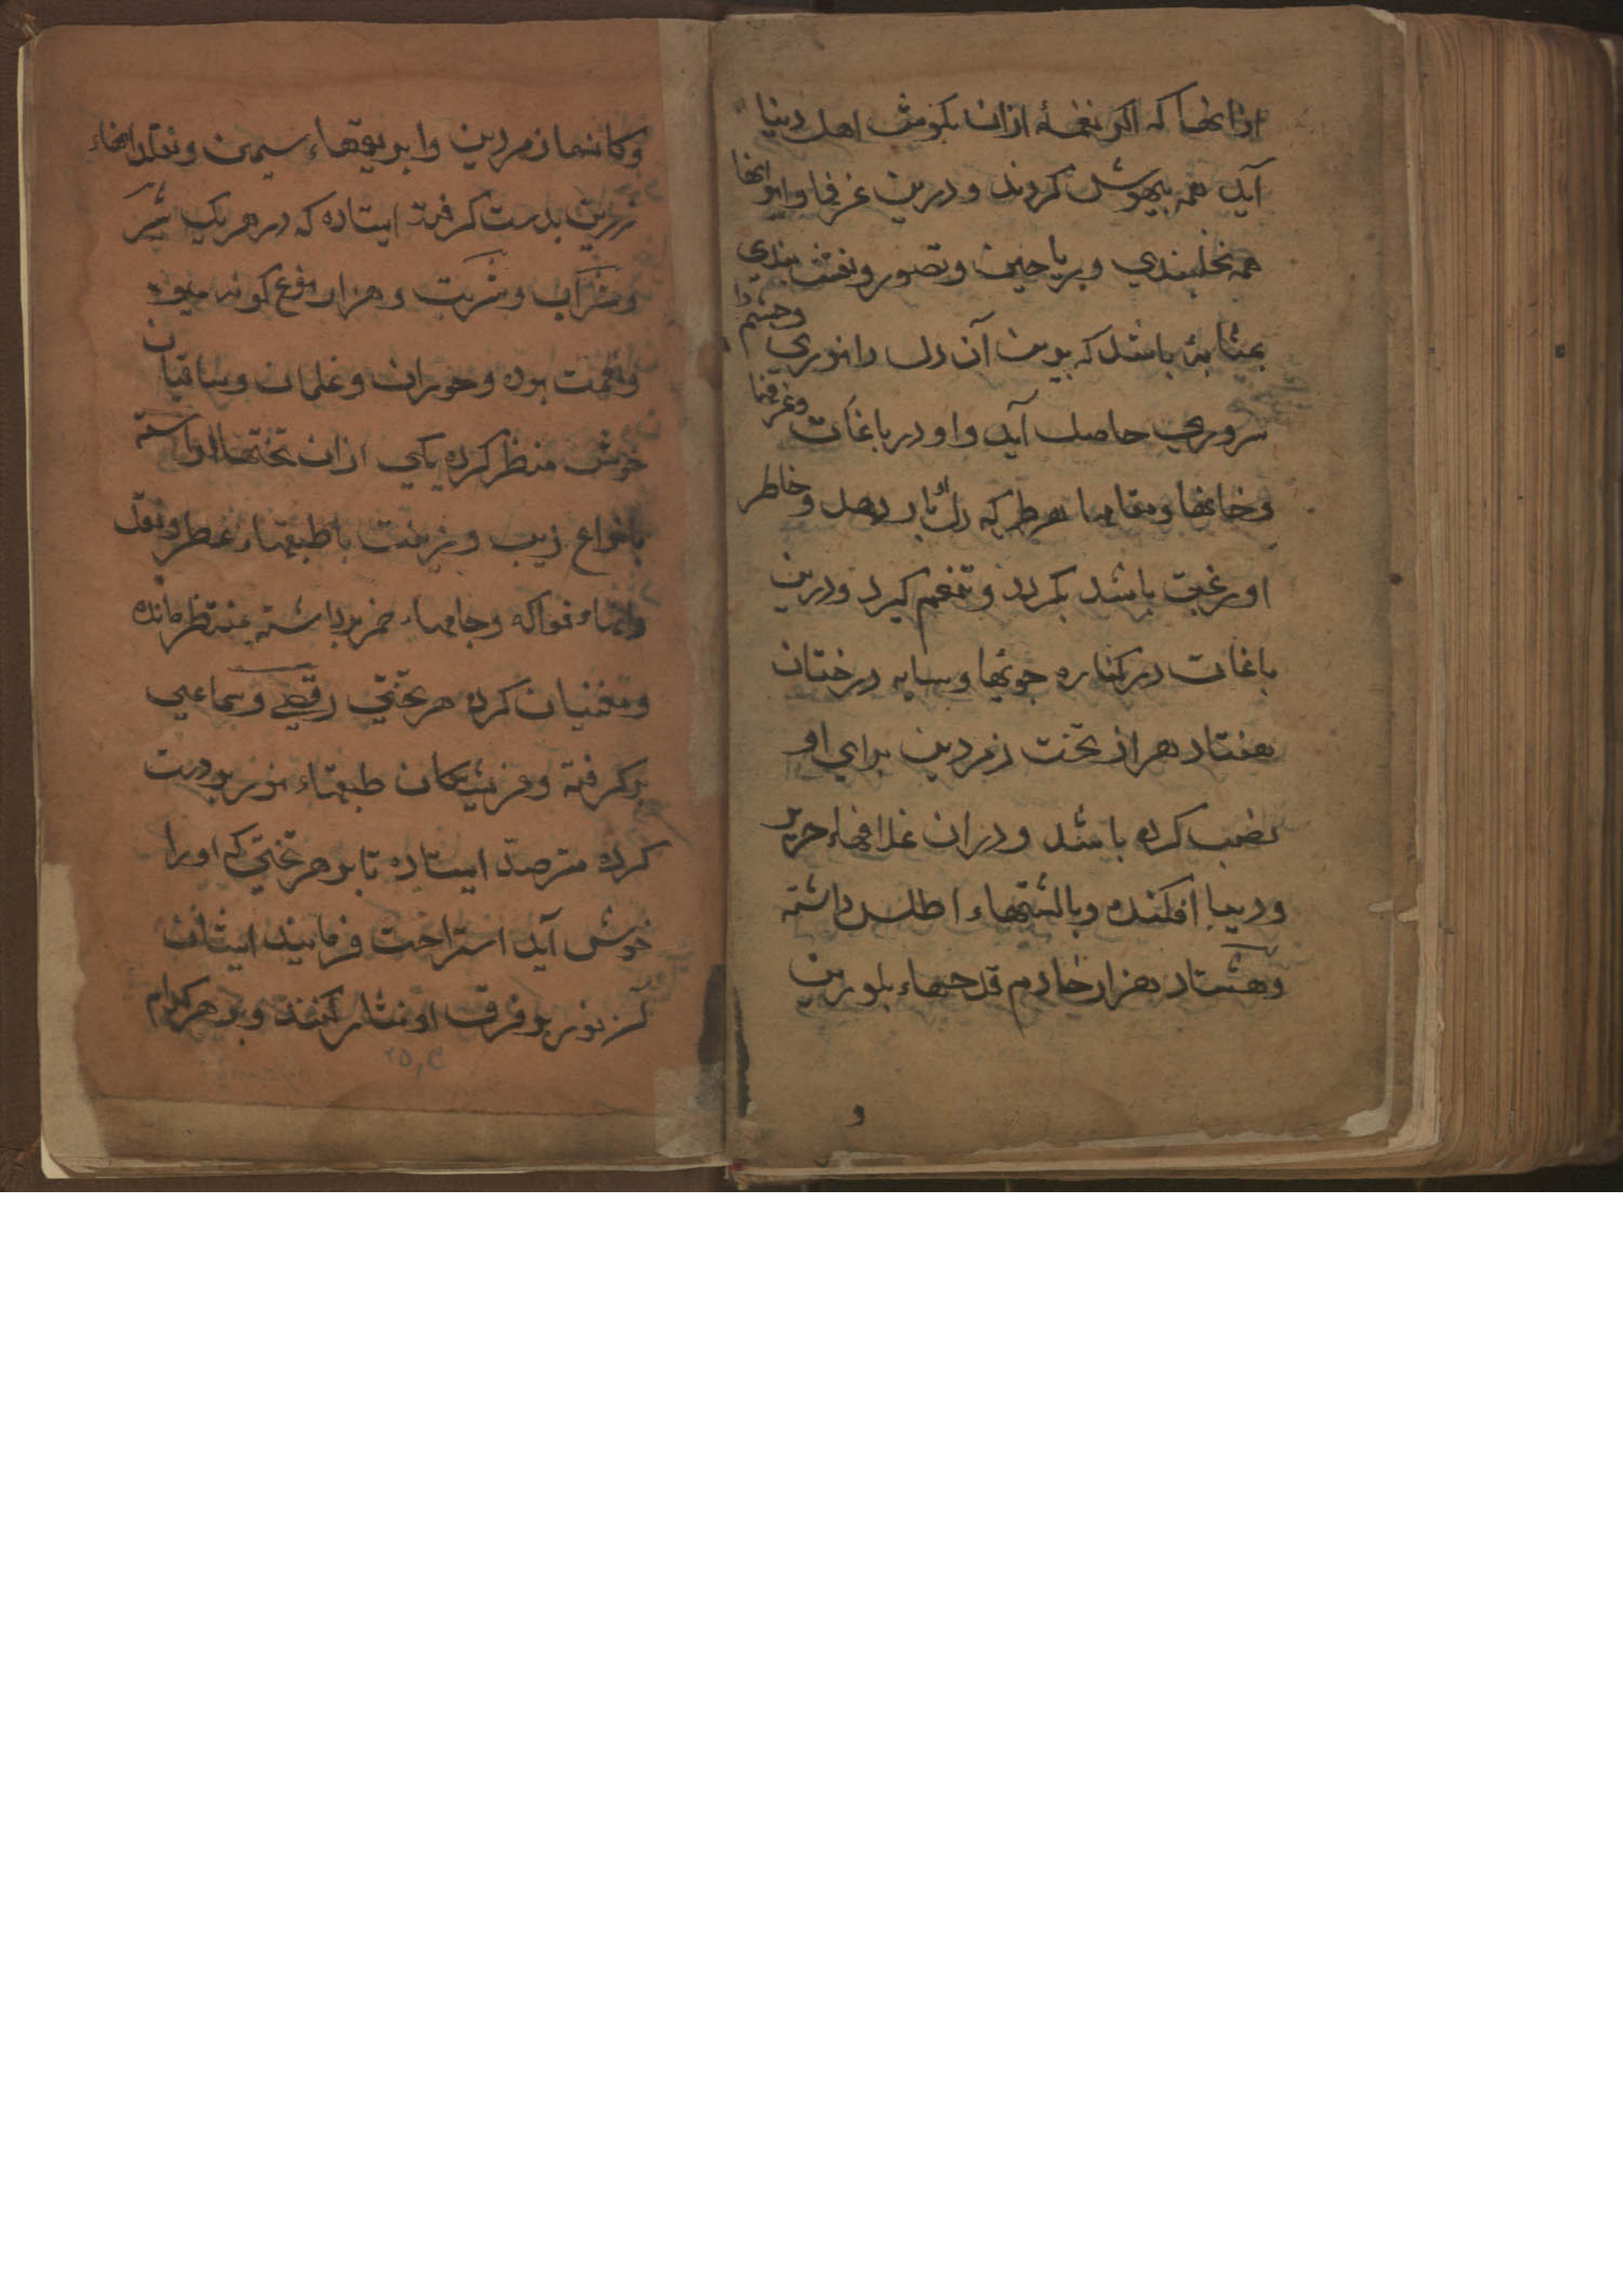 ازانها که اکر نغمهٔ ازان بکوش اهل دنیا
آید همه بیهوش کردند و درین غرفها و ایوانها
همه نخلبندی و ریاحین و تصور و نقش بندی
بمثابهٔ باشد که بدیدن آن دل را نوری و چشم را
سروری حاصل آید و او در باغات و غرفها
و خانها و مقامها هر طرکه دل او بار دهد و خاطر
او رغبت باشد بکردد و تنعم کیرد و درین
باغات در کناره جویها و سایه درختان
هفتاد هزار تخت زمردین برای او
نصب کرده باشد و دران غلافهاء حریر
و دیبا افکنده و بالشتهاء اطلس داشته
و هشتاد هزار خادم قدحهاء بلورین
و
وکاسها زمردین و ابریقهاء سیمین و نقلدانهاء
زرین بدست کرفته ایستاده که در هر یک شیر
و شراب و شربت و هزار نوع کونه میوه
و نعمت بوده و حوران و غلمان و ساقیان
خوش منظر کرده یکی ازان تختها اراسته
بانواع زیب و زینت با طبقهاء عطر و نقل
فواکه و جامهاء خمر برداشته منتظر مانده
و مغنیان کرد هر تختی رقصی و سماعی
برکرفته و فرشتکان طبقهاء نور بر دست
کرده مترصد ایستاده تا بر هر تختی که او را
خوش آید استراحت فرمایند ایشان
نور بر فرق او نثار کنند و بر هر کدام